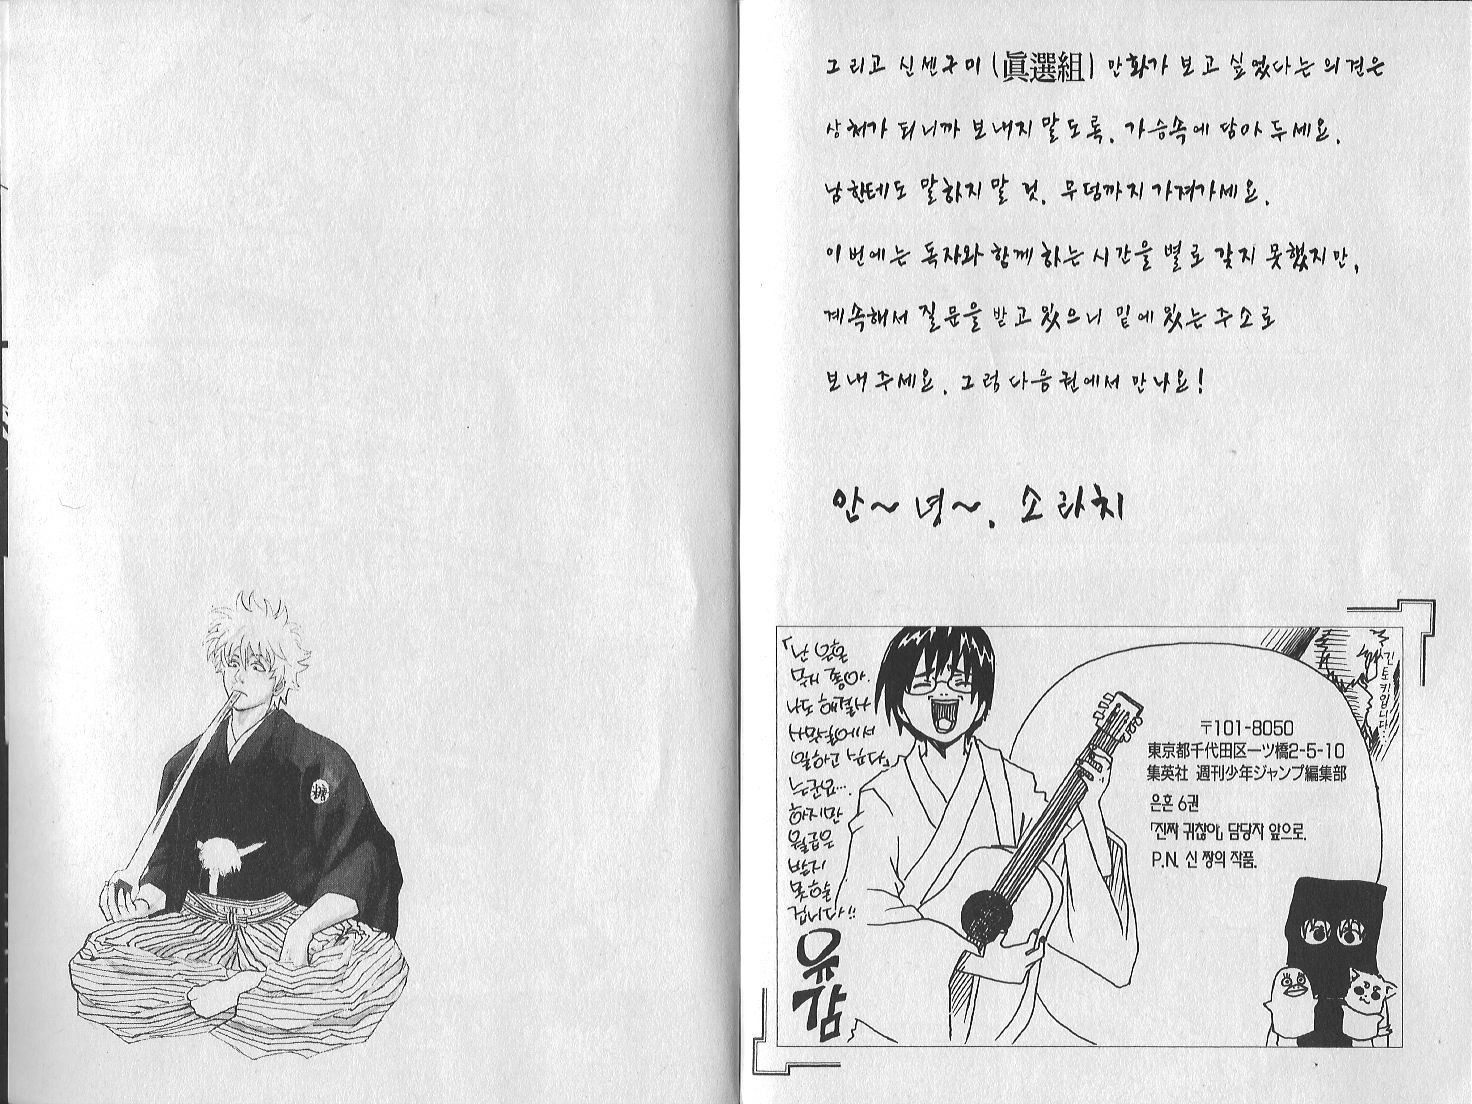 그리고 신센구미(眞選組) 만화가 보고 싶었다는 의견은
상처가 되니까 보내지 말도록. 가슴속에 담아 두세요.
남한테도 말하지 말 것. 무덤까지 가져가세요.
이번에는 독자와 함께 하는 시간을 별로 갖지 못했지만,
계속해서 질문을 받고 있으니 밑에 있는 주소로
보내 주세요. 그럼 다음 권에서 만나요!
안~녕~. 소라치
「난 은혼
무지 좋아.
나도 해결사
사무실에서
일하고 싶다」
는군요….
하지만
월급은
받지
못하실
겁니다!!
유감
긴토키입니다…
〒101-8050
東京都千代田区一ツ橋2-5-10
集英社 週刊少年ジャンプ編集部
은혼 6권
「진짜 귀찮아」 담당자 앞으로.
P.N. 신 짱의 작품.